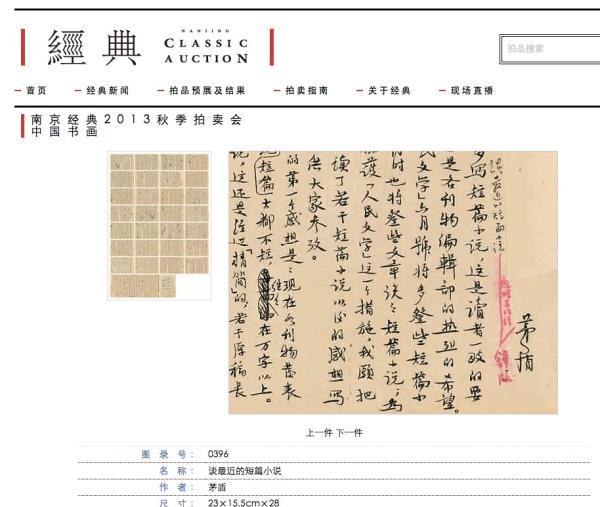 經典
NANJING
CLASSIC
AUCTION
拍品搜索
首页
经典新闻
拍品预展及结果
拍卖指南
关于经典
现场直播
南京经典2013秋季拍卖会
中国书画
谈最近的短篇小说
茅盾
多写短篇小说，这是读者一致的要
是各刊物编辑部的热烈的希望。
民文学》六月号将多登些短篇小
时也将登些文章谈谈短篇小说；为
拥护《人民文学》这一措施，我愿把
读了若干短篇小说以后的感想写
供大家参考。
的第一个感想是：现在各刊物发表
短篇》大都不短，往往在万字以上。
说，这还是经过“精简”的，若干原稿长
上一件 下一件
图录号： 0396
名称： 谈最近的短篇小说
作者： 茅盾
尺寸： 23×15.5cm×28